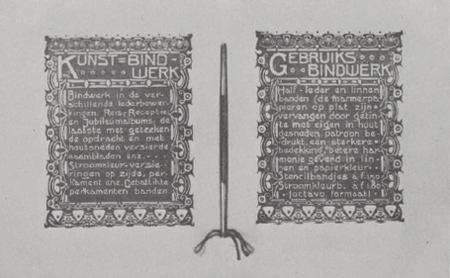 KUNST=BIND-
WERK
Bindwerk in de ver-
schillende lederbewer-
kingen. Reis-, Receptie-
en Jubileumalbums, de
laatste met geteeken
de opdracht en met
houtsneden versierde
naambladen enz.
Stroomkleur-versie-
ringen op zijde, per-
kament enz. Gebatikte
perkamenten banden
GEBRUIKS
BINDWERK
Half-leder en linnen
banden (de marmerpa-
pieren op plat zijn
vervangen door getin-
te met eigen in hout
gesneden patroon be-
drukt, een sterkere
bedekking, betere har-
monie gevend in lin-
nen en papierkleur.
Stencilbandjes à f 1.
Stroomkleurb. à f 1.80
(octavo formaat)